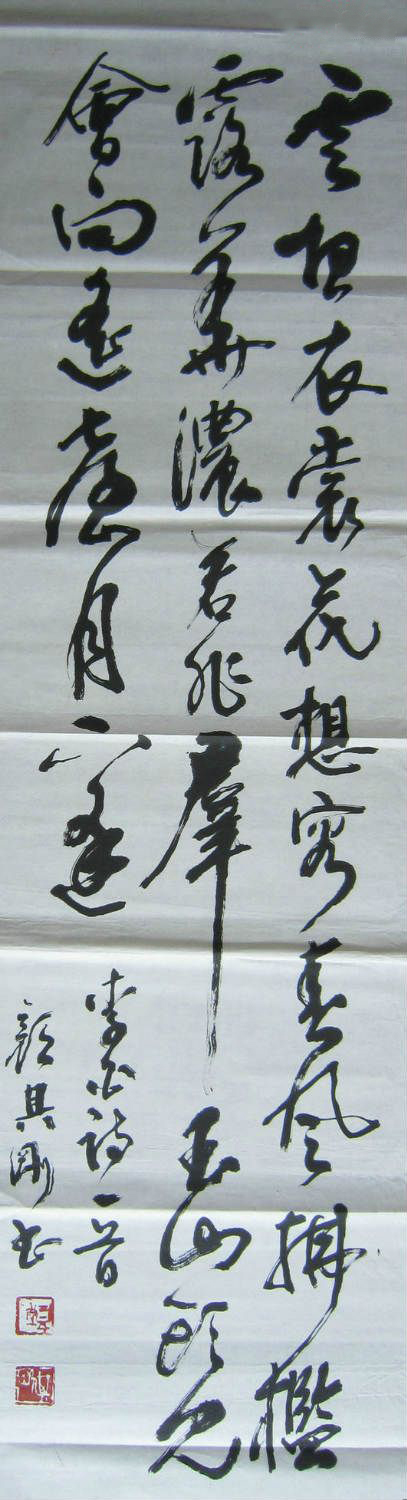 云想衣裳花想容春風拂檻
露華濃若非羣玉山頭見
會向瑤臺月下逢
李白詩一首
顏其剛书